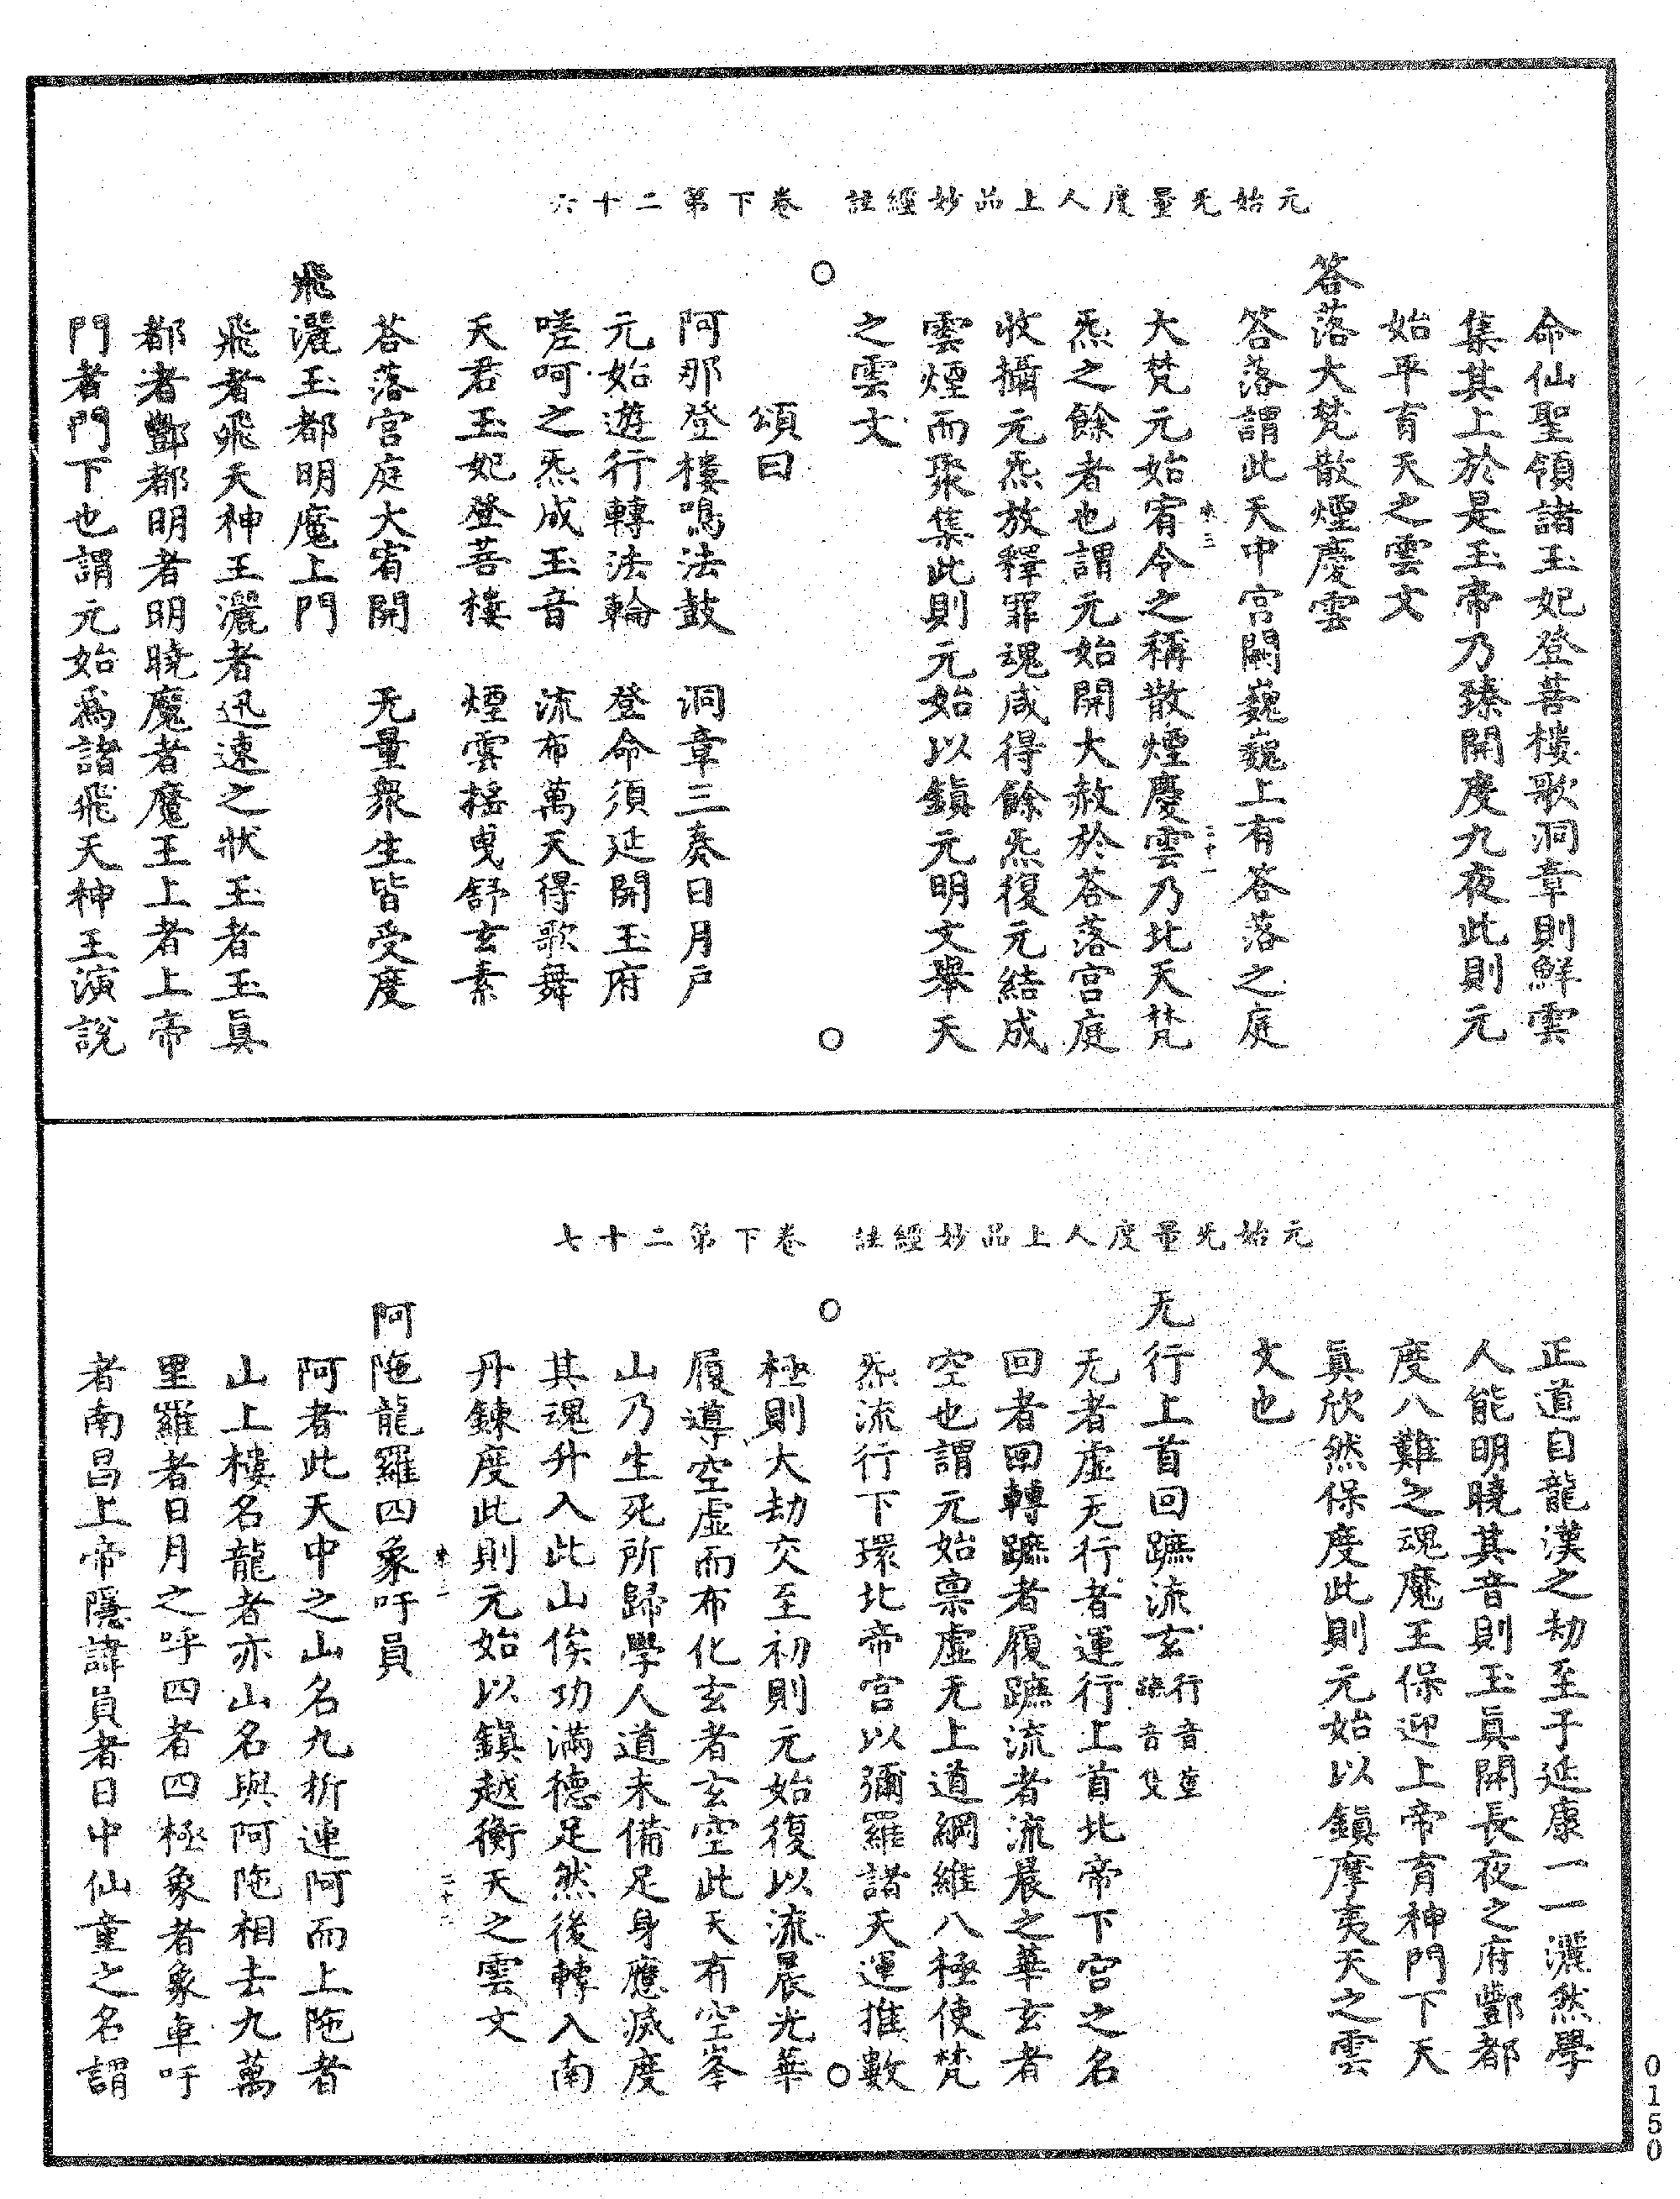 元始无量度人上品妙經註　卷下第二十六
命仙聖領諸玉妃登菩樓歌洞章則鮮雲
集其上於是玉帝乃臻開度九夜此則元
始平育天之雲文
答落大梵散煙慶雲
答落謂此天中宮闕巍巍上有答落之庭
大梵元始宥令之稱散煙慶雲乃北天梵
炁之餘者也謂元始開大赦於答落宮庭
收攝元炁放釋罪魂咸得餘炁復元結成
雲煙而聚集此則元始以鎮元明文舉天
之雲文
頌曰
阿那登樓鳴法鼓　洞章三奏日月戶
元始遊行轉法輪　登命須延開玉府
嗟呵之炁成玉音　流布萬天得歌舞
天君玉妃登菩樓　煙雲搖曳舒玄素
答落宮庭大宥開　无量衆生皆受度
飛灑玉都明魔上門
飛者飛天神王灑者迅速之狀玉者玉眞
都者酆都明者明曉魔者魔王上者上帝
門者門下也謂元始爲諸飛天神王演說
元始无量度人上品妙經註　卷下第二十七
正道自龍漢之劫至于延康一一灑然學
人能明曉其音則玉眞開長夜之府酆都
度八難之魂魔王保迎上帝育神門下天
眞欣然保度此則元始以鎮摩夷天之雲
文也
无行上首回蹠流玄行音莖蹠音隻
无者虛无行者運行上首北帝下宮之名
回者回轉蹠者履蹠流者流晨之華玄者
空也謂元始禀虛无上道綱維八極使梵
炁流行下環北帝宮以彌羅諸天運推數
極則大劫交至初則元始復以流晨光華
履導空虛而布化玄者玄空此天有空峯
山乃生死所歸學人道未備足身應滅度
其魂升入此山俟功滿德足然後轉入南
丹鍊度此則元始以鎮越衡天之雲文
阿陁龍羅四象吁員
阿者此天中之山名九折連阿而上陁者
山上樓名龍者亦山名與阿陁相去九萬
里羅者日月之呼四者四極象者象車吁
者南昌上帝隱諱員者日中仙童之名謂
0150